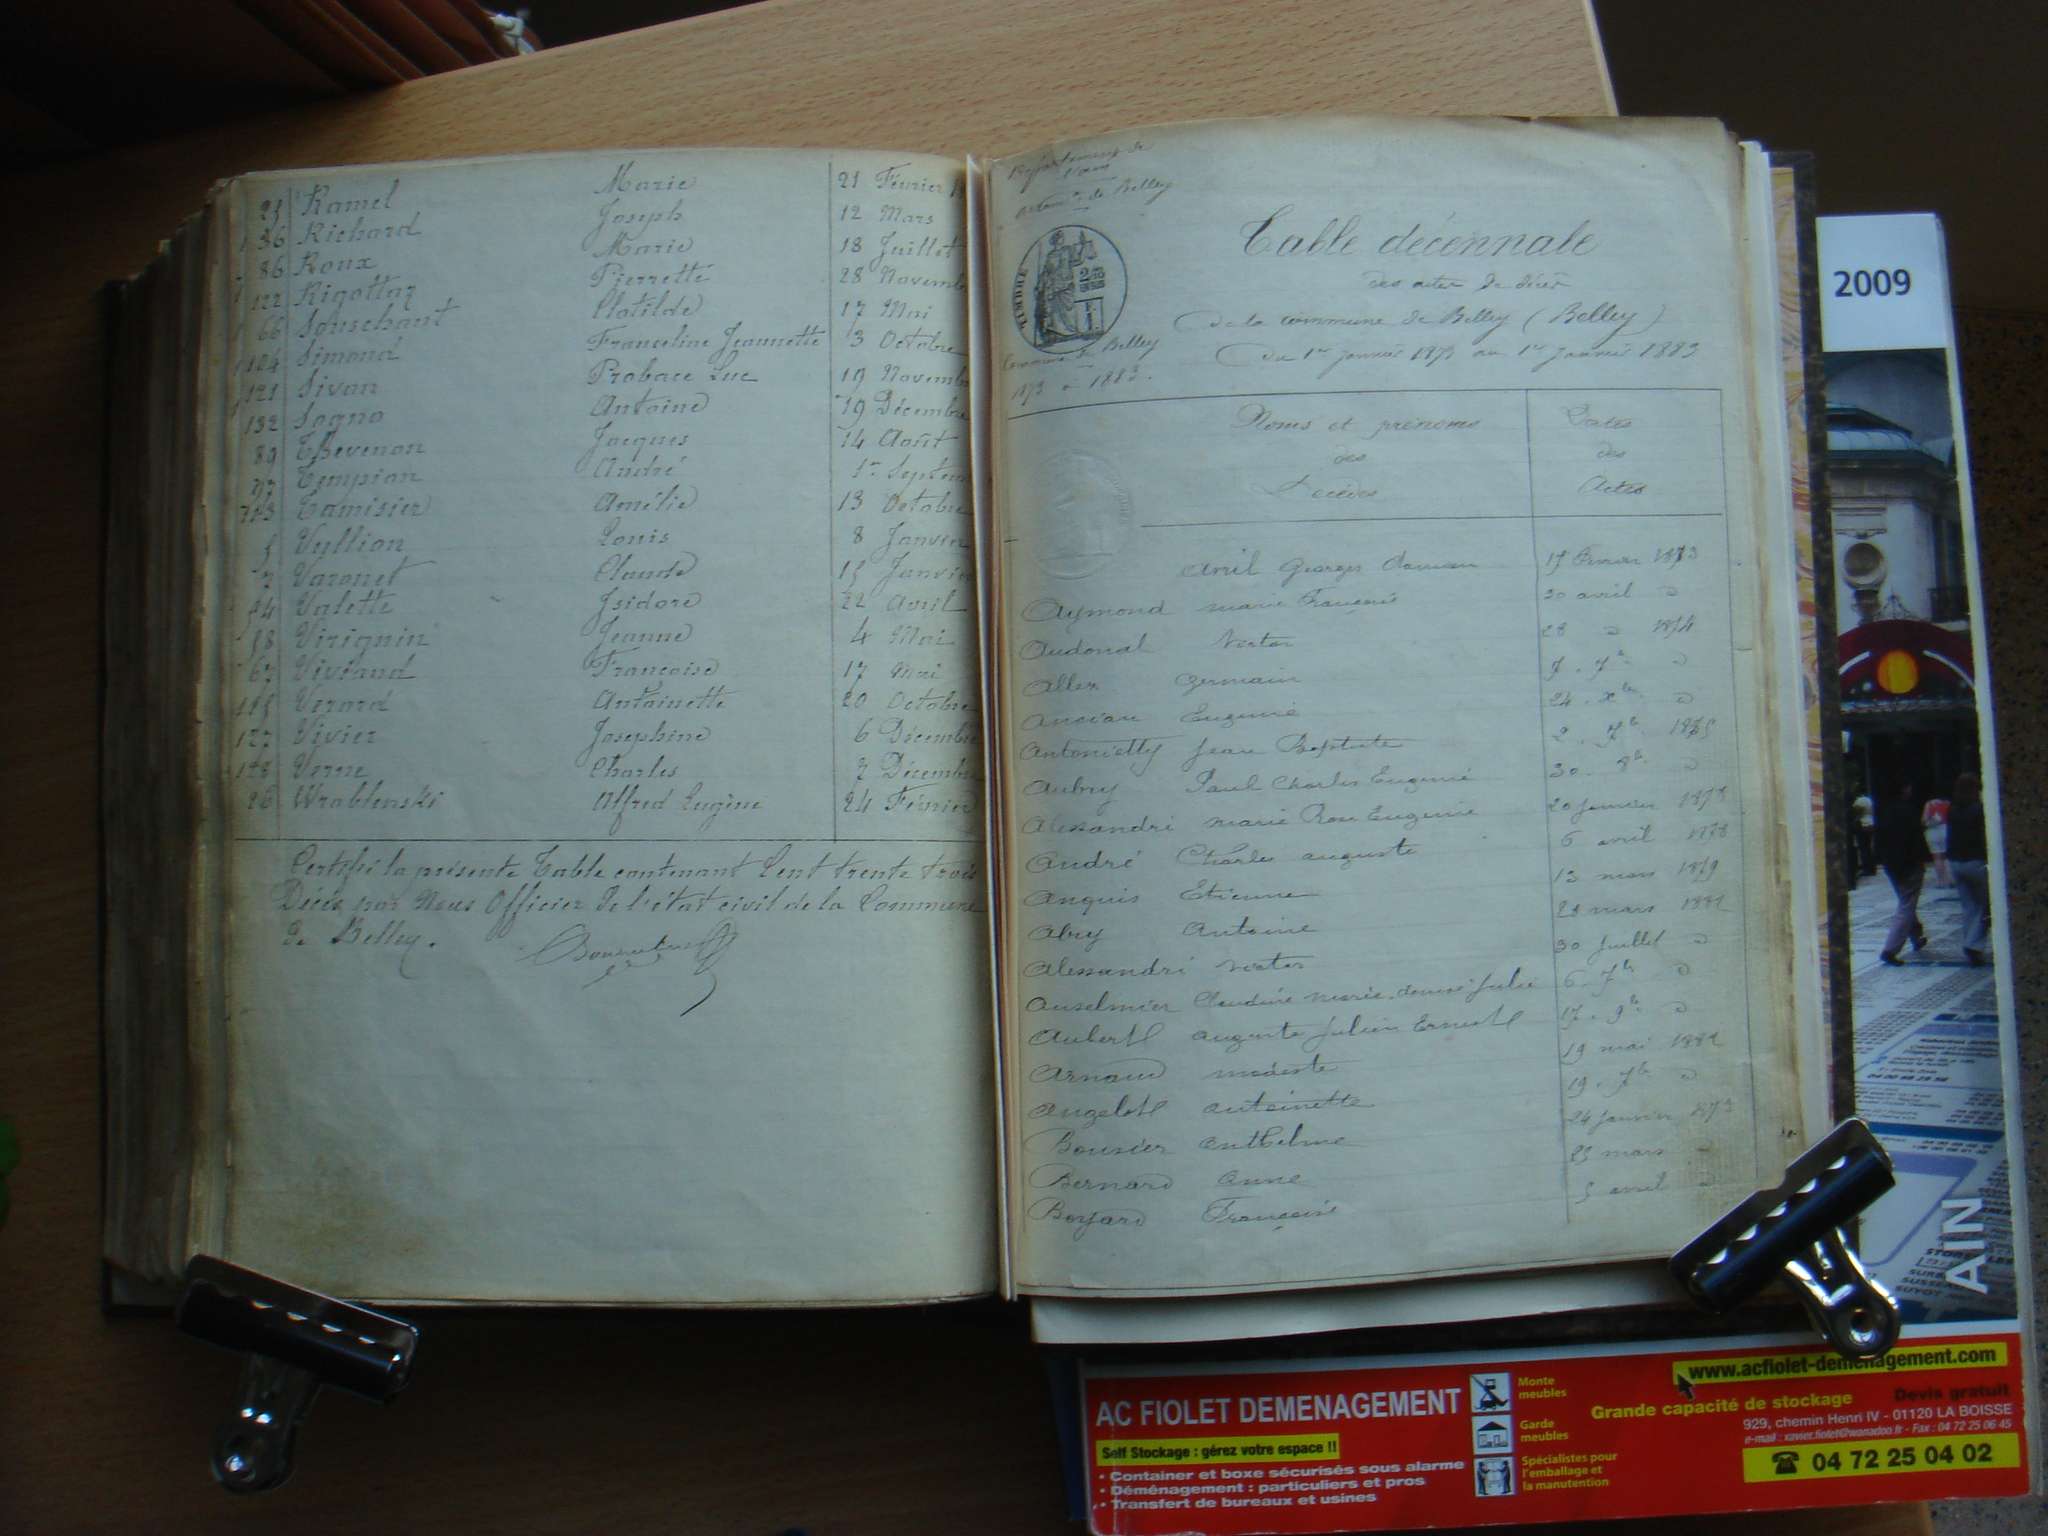 25 Ramel Marie 21 Février
36 Richard Joseph 12 Mars
86 Roux Marie 18 Juillet
122 Rigottaz Pierrette 28 Novemb
66 Souschant Clotilde 17 Mai
104 Simond Franceline Jeannette 3 Octobre
121 Sivan Probace Luc 19 Novembre
132 Sogno Antoine 19 Décembre
89 Thevenon Jacques 14 Août
97 Tempion André 1er Septem
113 Tamisier Amélie 13 Octobre
5 Vullion Louis 8 Janvier
7 Varonet Claude 15 Janvier
54 Valette Isidore 22 Avril
58 Virignin Jeanne 4 Mai
67 Viviand Françoise 17 Mai
115 Verard Antoinette 20 Octobre
127 Vivier Joséphine 6 Décembre
128 Verne Charles 7 Décembre
26 Wroblenski Alfred Eugène 24 Février
Certifié la présente Table contenant Cent trente trois
Décès par Nous Officier de l'état civil de la Commune
de Belley.
Département de
l'ain
de Belley
TIMBRE
Commune de Belley
1873 à 1883.
Table décennale
des actes de décès
de la commune de Belley (Belley)
du 1er janvier 1873 au 1er Janvier 1883
Noms et prénoms
des
Décédés
Dates
des
Actes
Avril Georges Damien 17 février 1873
Aymond marie Françoise 30 avril d
Audonal Victor 28 d 1874
Allex Germain 7. 7bre d
Ancian Eugenie 24. Xbre d
Antonietty Jean Baptiste 2. 7b 1875
Aubry Paul Charles Eugenie 30. 8b d
Alessandri marie Rose Eugenie 20 janvier 1878
André Charles auguste 6 avril 1878
Anquis Etienne 13 mars 1879
Abry Antoine 28 mars 1881
Alessandri Victor 30 Juillet d
Anselmier Claudine marie denise Julie 6. 7b d
Aubert auguste Julien Ernest 17. 9b d
Arnaud modeste 19 mai 1882
Angelot antoinette 19. 7b d
Bouvier anthelme 24 janvier 1873
Bernard anne 25 mars d
Borjard Françoise 5 avril d
2009
AIN
AC FIOLET DEMENAGEMENT
Self Stockage : gérez votre espace !!
• Container et boxe sécurisés sous alarme
• Déménagement : particuliers et pros
• Transfert de bureaux et usines
Monte
meubles
Garde
meubles
Spécialistes pour
l'emballage et
la manutention
www.acfiolet-demenagement.com
Grande capacité de stockage Devis gratuit
929, chemin Henri IV - 01120 LA BOISSE
e-mail : xavier.fiolet@wanadoo.fr - Fax : 04 72 25 06 45
☎ 04 72 25 04 02